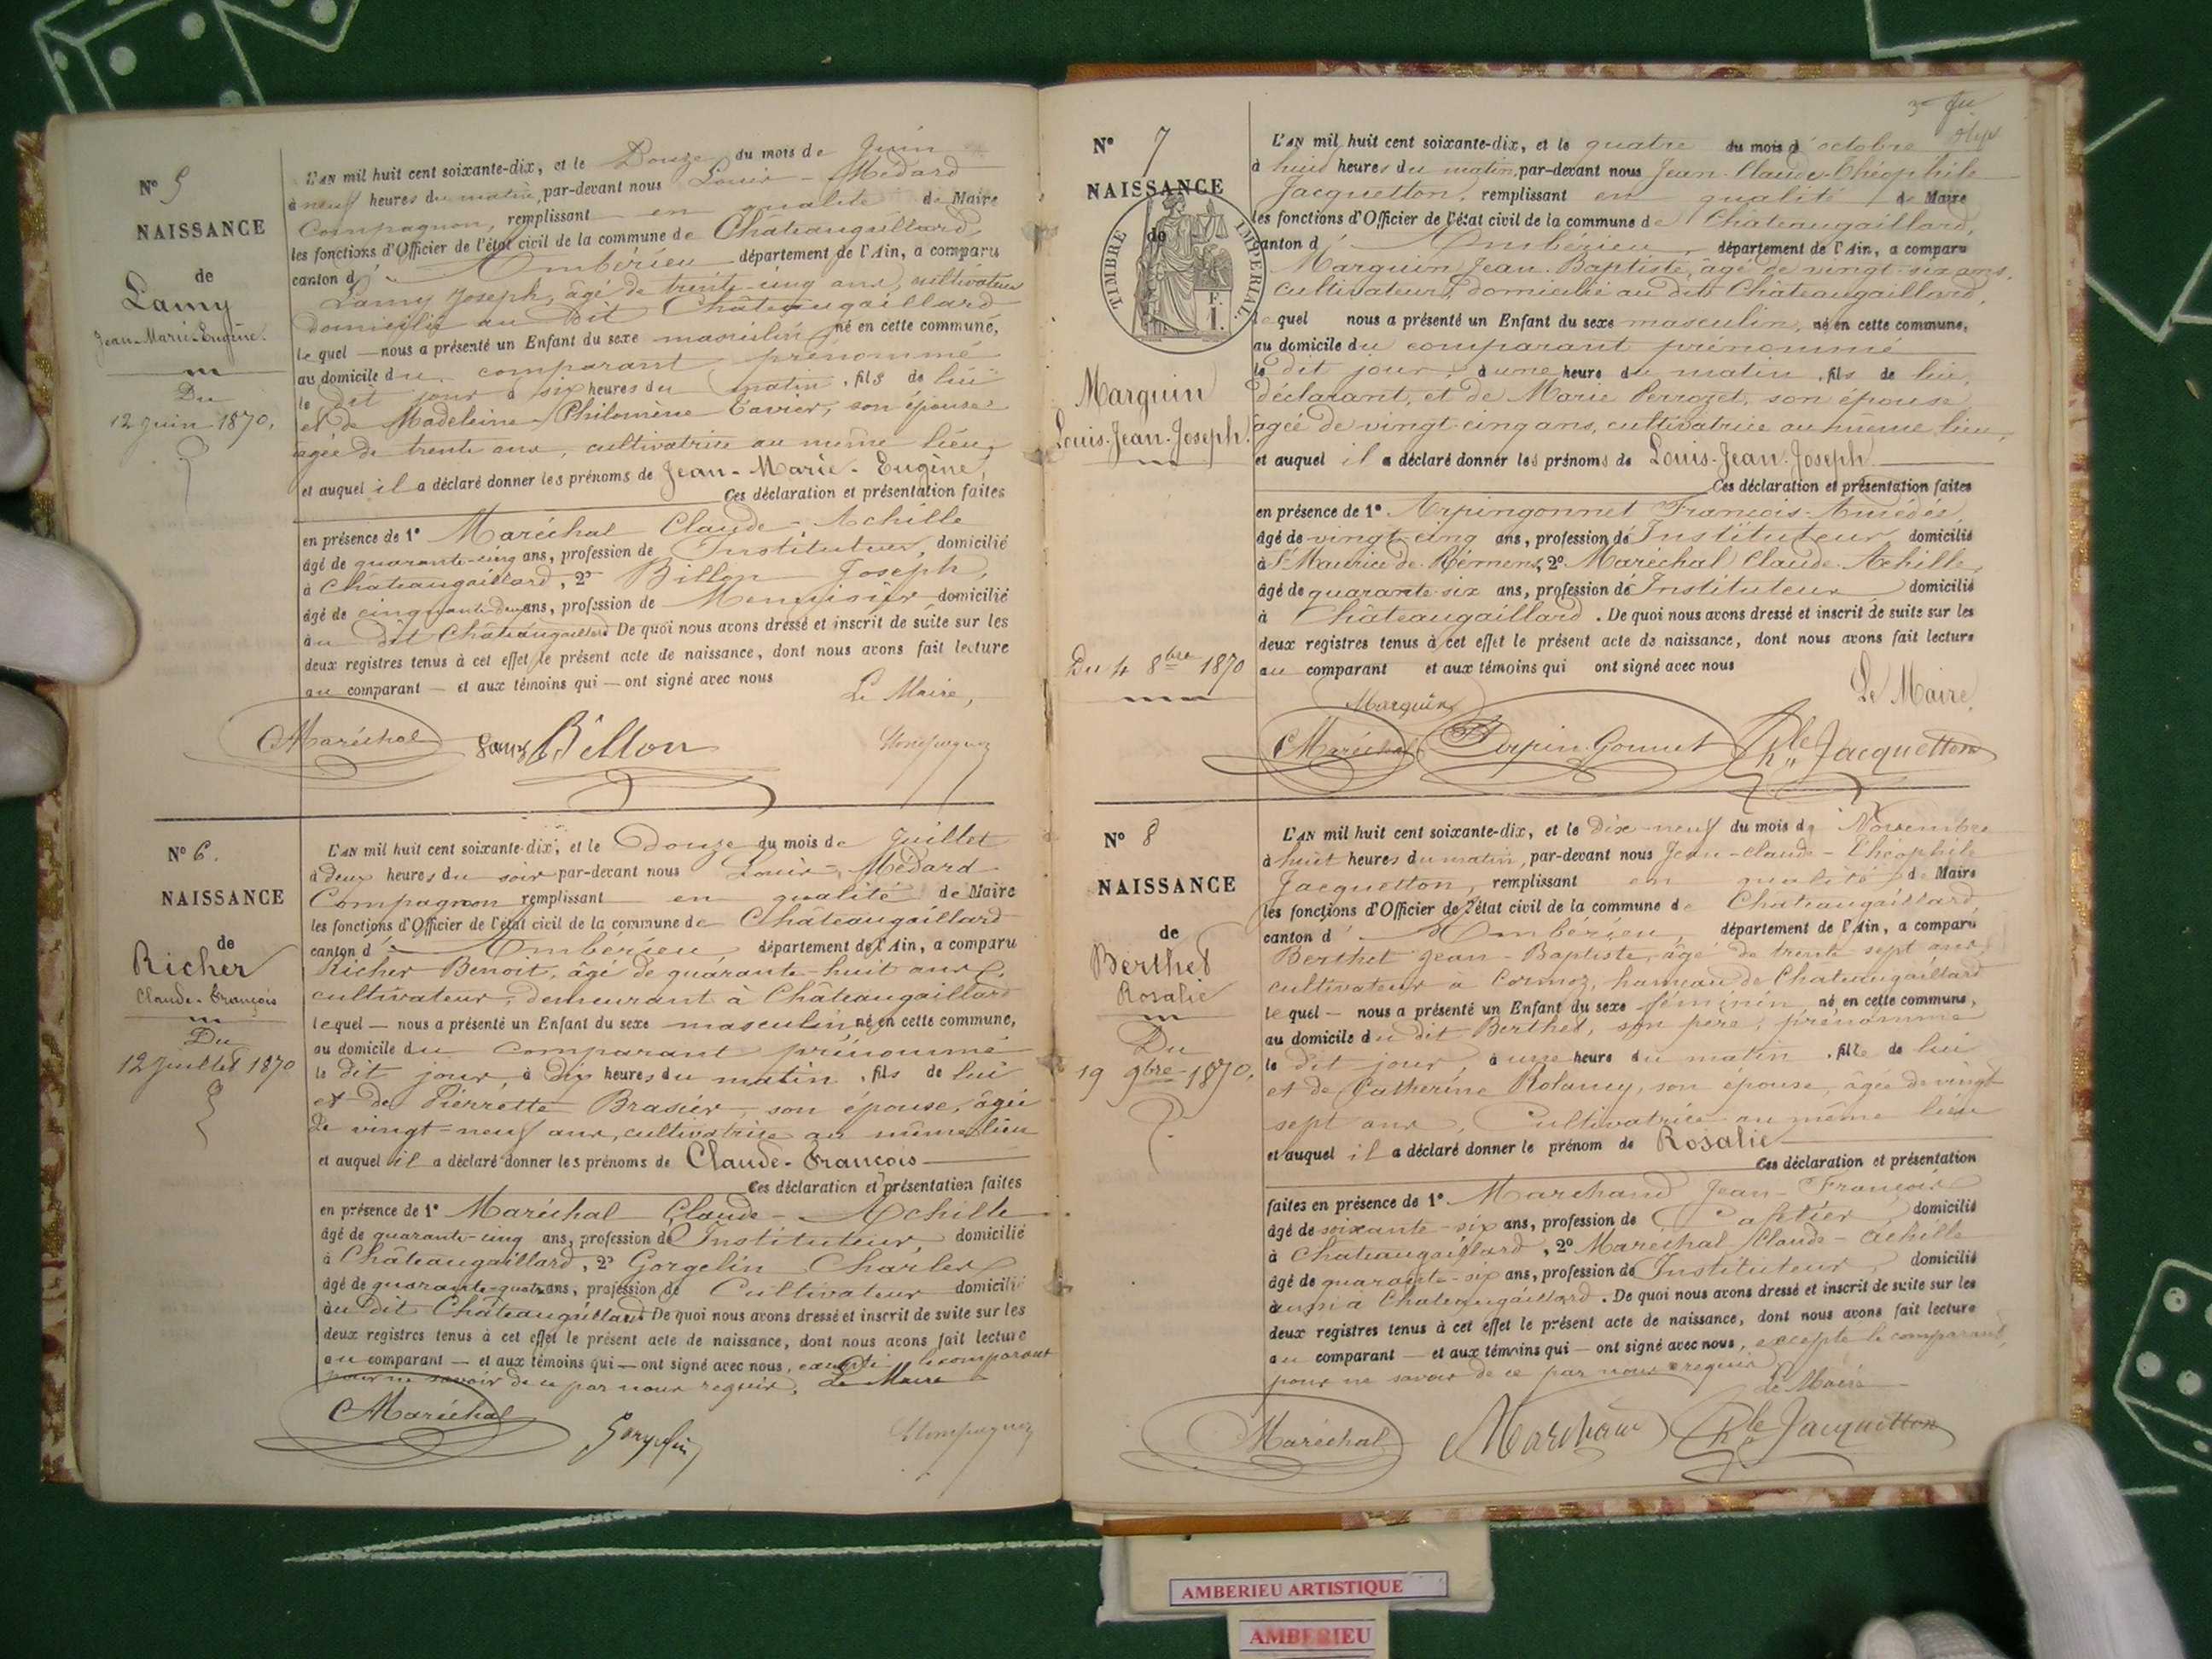 N° 5
NAISSANCE
de
Lamy
Jean-Marie-Eugène.
Du
12 Juin 1870.
L'AN mil huit cent soixante-dix, et le Douze du mois de Juin
à neuf heures du matin, par-devant nous Louis-Médard
Compagnon, remplissant en qualité de Maire
les fonctions d'Officier de l'état civil de la commune de Châteaugaillard,
canton d'Ambérieu département de l'Ain, a comparu
Lamy Joseph, âgé de trente-cinq ans, cultivateur
domicilié au dit Châteaugaillard
lequel — nous a présenté un Enfant du sexe masculin, né en cette commune,
au domicile du comparant prénommé
le dit jour à six heures du matin, fils de lui
et de Madeleine Philomène Tavier, son épouse
agée de trente ans, cultivatrice au même lieu,
et auquel il a déclaré donner les prénoms de Jean-Marie-Eugène,
Ces déclaration et présentation faites
en présence de 1° Maréchal Claude-Achille
âgé de quarante-cinq ans, profession de Instituteur, domicilié
à Châteaugaillard, 2° Billon Joseph,
âgé de cinquante-deux ans, profession de Menuisier domicilié
au dit Châteaugaillard De quoi nous avons dressé et inscrit de suite sur les
deux registres tenus à cet effet le présent acte de naissance, dont nous avons fait lecture
au comparant — et aux témoins qui — ont signé avec nous
Le Maire,
Maréchal Billon Compagnon
N° 6.
NAISSANCE
de
Richer
Claude-François
Du
12 Juillet 1870
L'AN mil huit cent soixante-dix, et le Douze du mois de Juillet
à deux heures du soir par-devant nous Louis-Médard
Compagnon remplissant en qualité de Maire
les fonctions d'Officier de l'état civil de la commune de Châteaugaillard
canton d'Ambérieu département de l'Ain, a comparu
Richer Benoit, âgé de quarante-huit ans,
cultivateur, demeurant à Châteaugaillard
lequel — nous a présenté un Enfant du sexe masculin né en cette commune,
au domicile du comparant prénommé
le dit jour à dix heures du matin, fils de lui
et de Pierrette Brasier, son épouse, âgée
de vingt-neuf ans, cultivatrice au même lieu
et auquel il a déclaré donner les prénoms de Claude-François
Ces déclaration et présentation faites
en présence de 1° Maréchal Claude-Achille
âgé de quarante-cinq ans, profession de Instituteur, domicilié
à Châteaugaillard, 2° Gorgelin Charles
âgé de quarante-quatre ans, profession de Cultivateur domicilié
au dit Châteaugaillard De quoi nous avons dressé et inscrit de suite sur les
deux registres tenus à cet effet le présent acte de naissance, dont nous avons fait lecture
au comparant — et aux témoins qui — ont signé avec nous, excepté le comparant
pour ne savoir de ce par nous requis. Le Maire
Maréchal Gorgelin Compagnon
N° 7
NAISSANCE
de
TIMBRE IMPERIAL
F. I.
Marquin
Louis-Jean-Joseph.
Du 4 8bre 1870
L'AN mil huit cent soixante-dix, et le quatre du mois d'octobre
à huit heures du matin, par-devant nous Jean-Claude-Théophile
Jacquetton, remplissant en qualité de Maire
les fonctions d'Officier de l'état civil de la commune de Châteaugaillard,
canton d'Ambérieu département de l'Ain, a comparu
Marquin Jean-Baptiste, âgé de vingt-six ans,
cultivateur, domicilié au dit Châteaugaillard,
lequel nous a présenté un Enfant du sexe masculin, né en cette commune,
au domicile du comparant prénommé
le dit jour, à une heure du matin, fils de lui,
déclarant, et de Marie Perrozet, son épouse
âgée de vingt-cinq ans, cultivatrice au même lieu,
et auquel il a déclaré donner les prénoms de Louis-Jean-Joseph
Ces déclaration et présentation faites
en présence de 1° Arpingonnet François-Amédée,
âgé de vingt-cinq ans, profession de Instituteur domicilié
à St Maurice de Rémens, 2° Maréchal Claude Achille,
âgé de quarante-six ans, profession de Instituteur domicilié
à Châteaugaillard. De quoi nous avons dressé et inscrit de suite sur les
deux registres tenus à cet effet le présent acte de naissance, dont nous avons fait lecture
au comparant et aux témoins qui ont signé avec nous
Le Maire,
Marquin
Maréchal Arpin-Gonnet Jacquetton
N° 8
NAISSANCE
de
Berthet
Rosalie
Du
19 9bre 1870.
L'AN mil huit cent soixante-dix, et le Dix-neuf du mois de Novembre
à huit heures du matin, par-devant nous Jean-Claude-Théophile
Jacquetton, remplissant en qualité de Maire
les fonctions d'Officier de l'état civil de la commune de Chateaugaillard,
canton d'Ambérieu, département de l'Ain, a comparu
Berthet Jean-Baptiste, âgé de trente sept ans,
cultivateur à Cormoz, hameau de Chateaugaillard
lequel — nous a présenté un Enfant du sexe féminin né en cette commune,
au domicile du dit Berthet, son père, prénommé
le dit jour, à une heure du matin, fille de lui
et de Catherine Rolancy, son épouse, âgée de vingt
sept ans, Cultivatrice au même lieu
et auquel il a déclaré donner le prénom de Rosalie
Ces déclaration et présentation
faites en présence de 1° Marchand Jean-François
âgé de soixante-six ans, profession de domicilié
à Chateaugaillard, 2° Maréchal Claude-Achille
âgé de quarante-six ans, profession de Instituteur, domicilié
aussi à Chateaugaillard. De quoi nous avons dressé et inscrit de suite sur les
deux registres tenus à cet effet le présent acte de naissance, dont nous avons fait lecture
au comparant — et aux témoins qui — ont signé avec nous, excepté le comparant,
pour ne savoir de ce par nous requis
Le Maire
Maréchal Marchand Jacquetton
AMBERIEU ARTISTIQUE
AMBERIEU